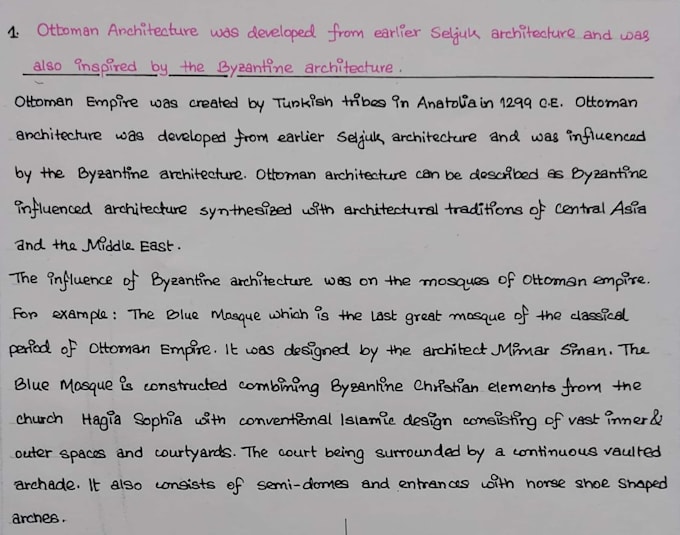 1. Ottoman Architecture was developed from earlier Seljuk architecture and was
also inspired by the Byzantine architecture.
Ottoman Empire was created by Turkish tribes in Anatolia in 1299 C.E. Ottoman
architecture was developed from earlier Seljuk architecture and was influenced
by the Byzantine architecture. Ottoman architecture can be described as Byzantine
influenced architecture synthesized with architectural traditions of Central Asia
and the Middle East.
The influence of Byzantine architecture was on the mosques of Ottoman empire.
For example: The Blue Mosque which is the last great mosque of the classical
period of Ottoman Empire. It was designed by the architect Mimar Sinan. The
Blue Mosque is constructed combining Byzantine Christian elements from the
church Hagia Sophia with conventional Islamic design consisting of vast inner &
outer spaces and courtyards. The court being surrounded by a continuous vaulted
archade. It also consists of semi-domes and entrances with horse shoe shaped
arches.